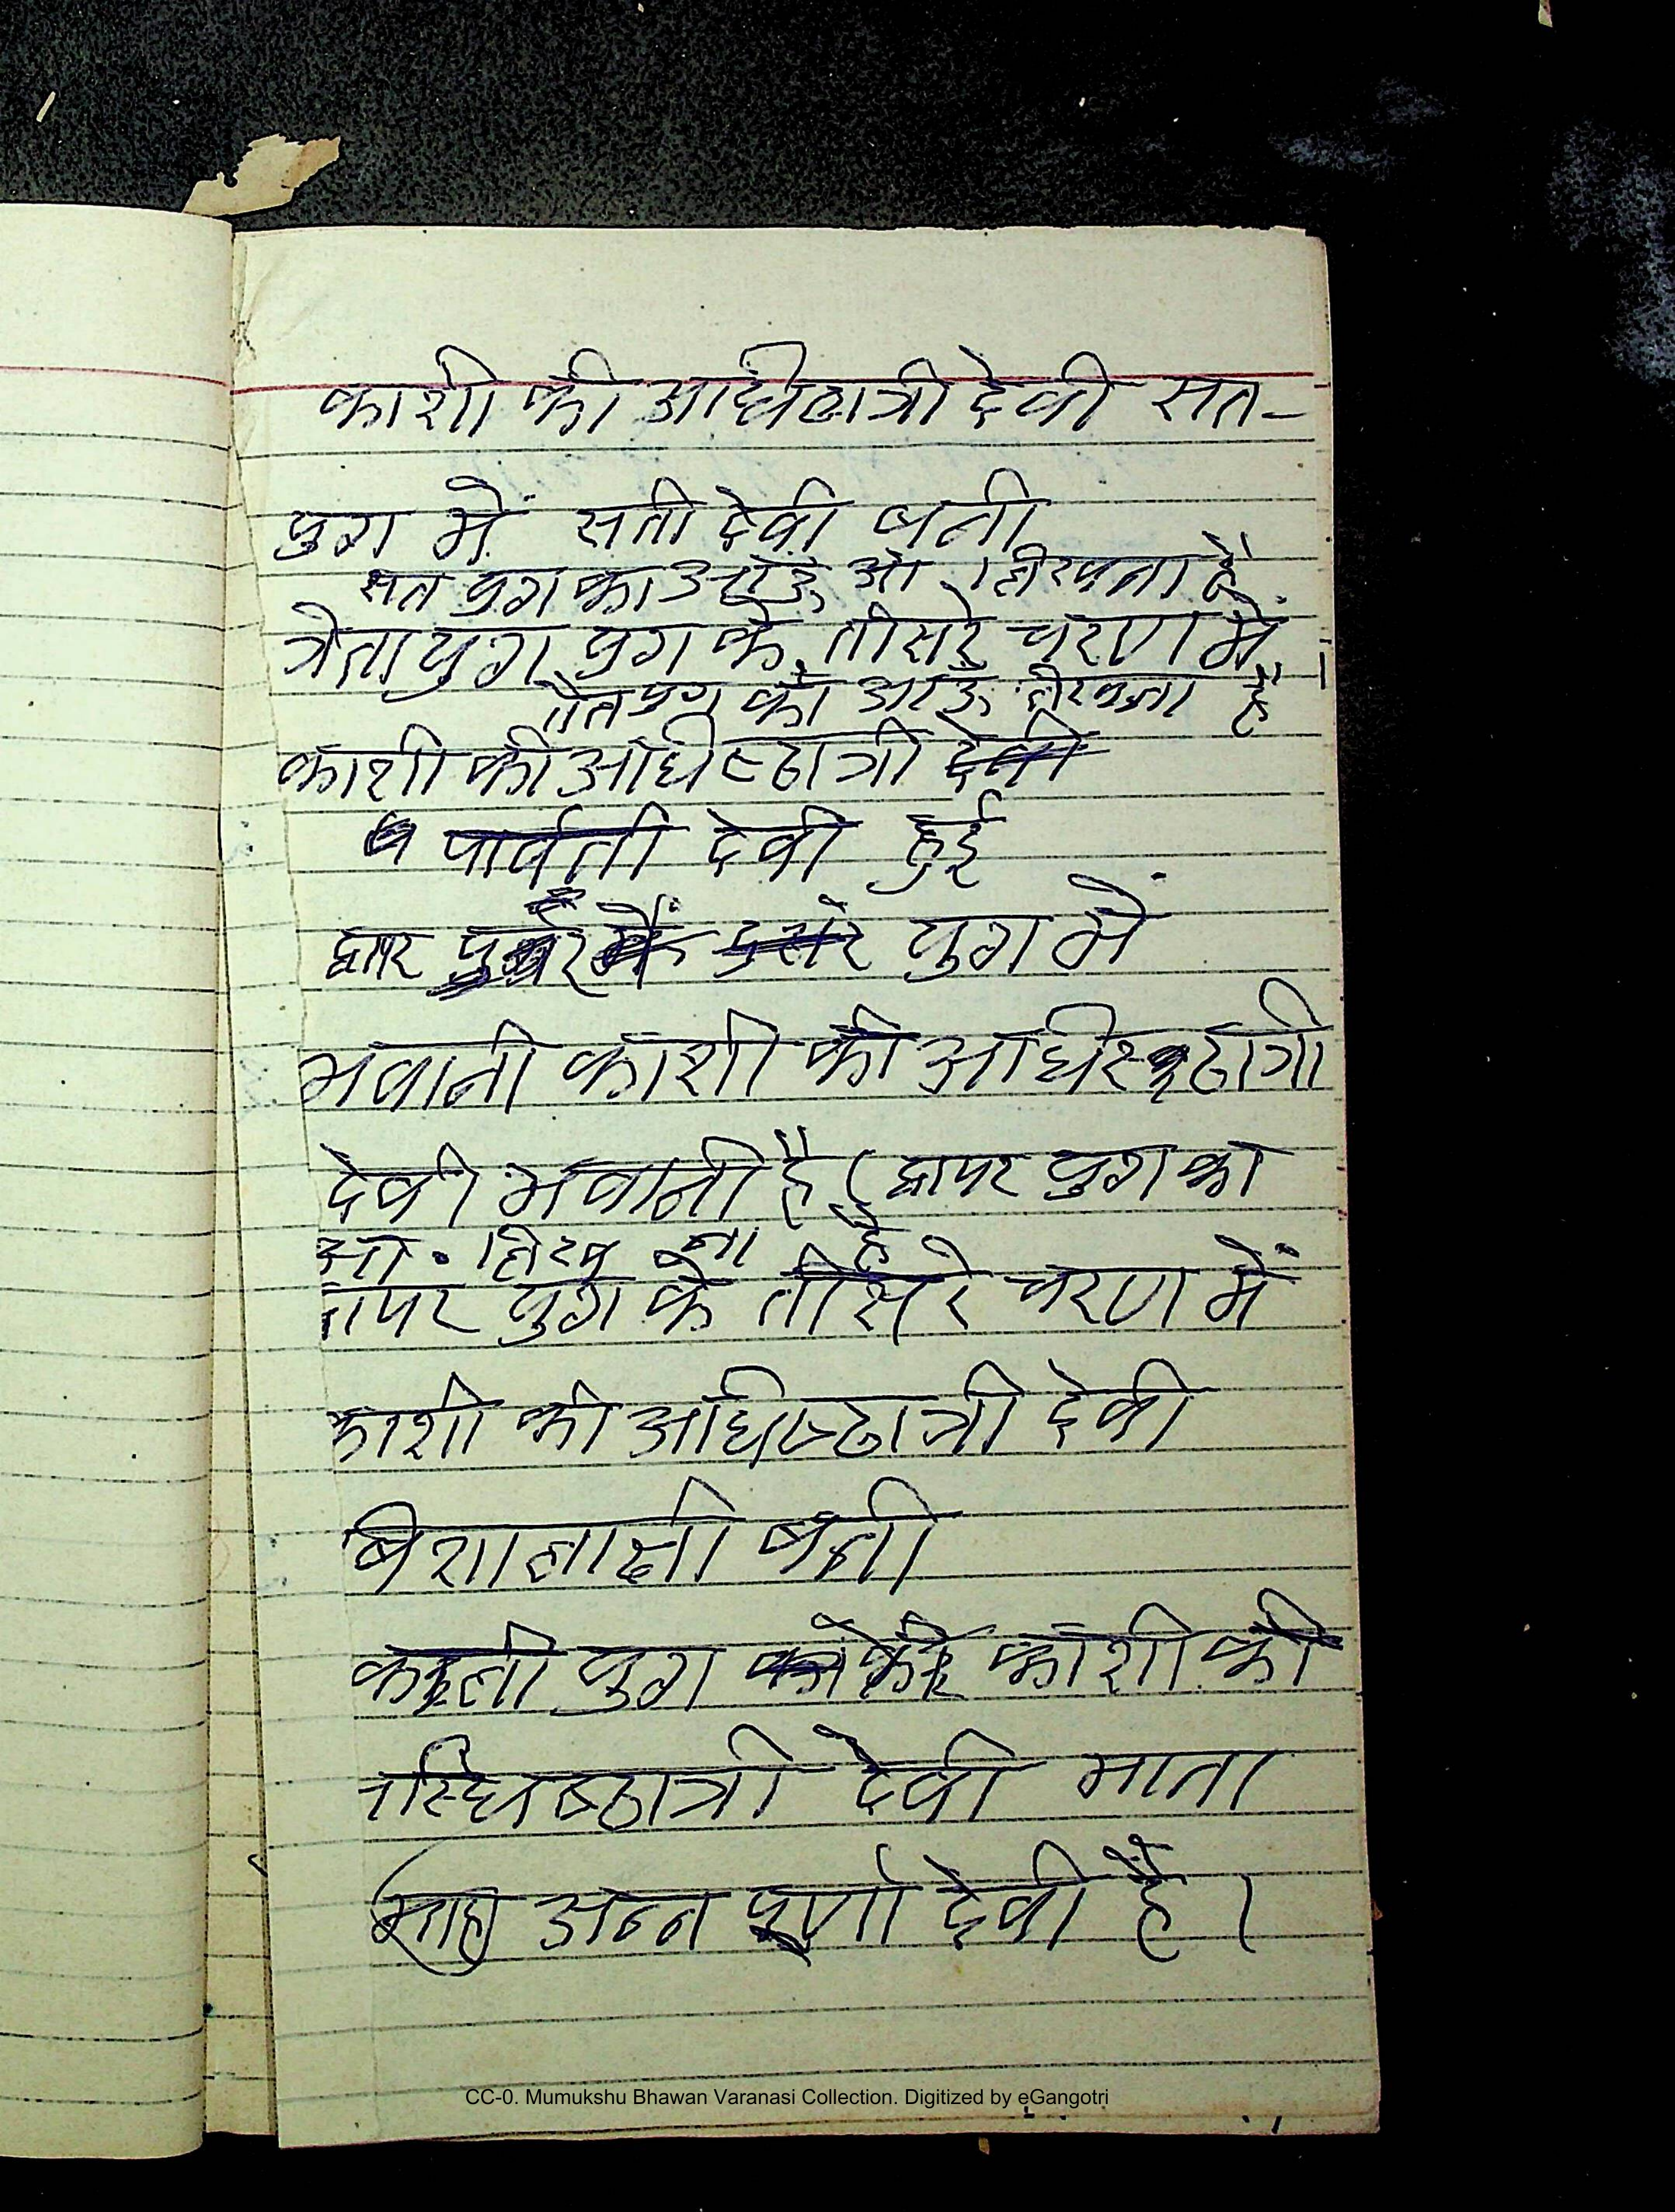 काशी की अधिष्ठात्री देवी सत-
युग में सती देवी बनी
सत युग का आऊ ओ लिखना है
त्रेता युग युग के तीसरे चरण में
त्रेतायुग का आऊ लिखना है
काशी की अधिष्ठात्री देवी
पार्वती देवी हुई
द्वापर युग में
भवानी काशी की अधिष्ठात्री
देवी भवानी है ( द्वापर युग का
ओ. लिख ना है
द्वापर युग के तीसरे चरण में
काशी की अधिष्ठात्री देवी
बिशालाक्षी बनी
कली युग काशी की
देवी माता
अन्न पूर्णा देवी है ।
CC-0. Mumukshu Bhawan Varanasi Collection. Digitized by eGangotri